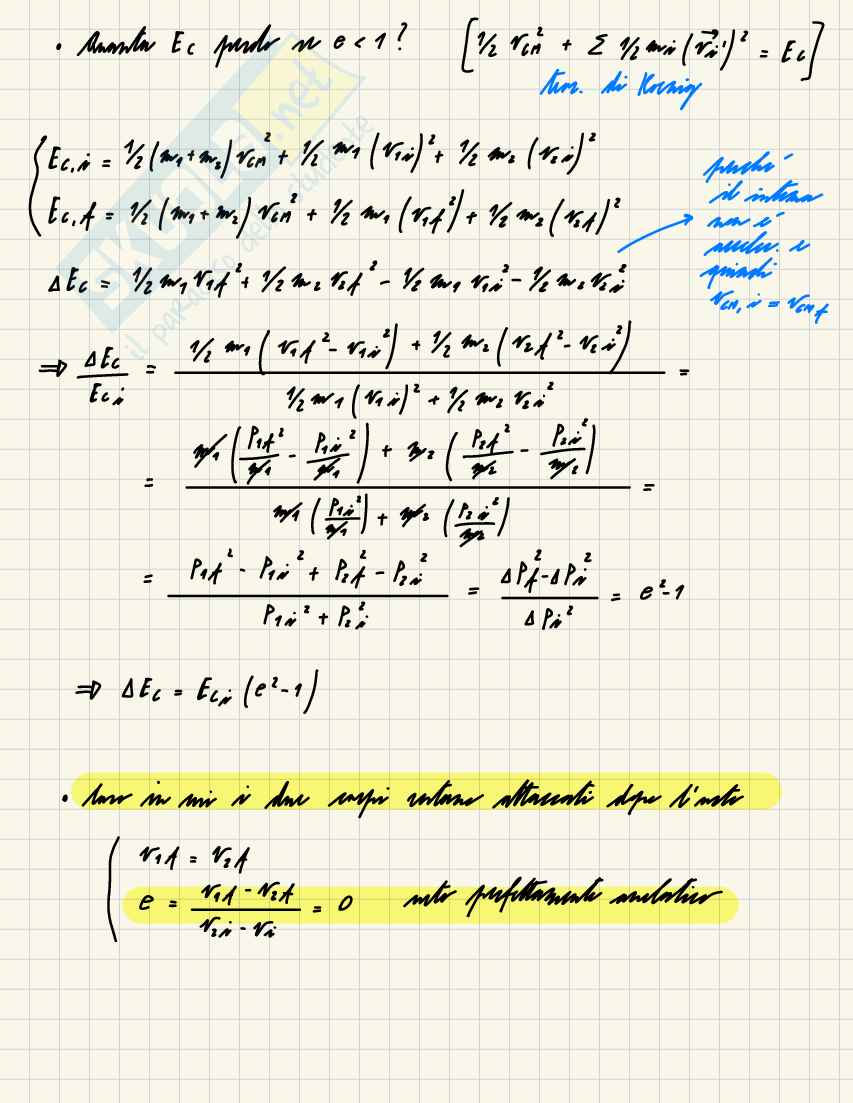 • Quanta Ec perdo se e < 1 ? [1/2 v_CM² + Σ 1/2 mi (v⃗i')² = Ec]
teor. di Koenig
Ec,i = 1/2 (m1+m2) v_CM² + 1/2 m1 (v1i)² + 1/2 m2 (v2i)²
Ec,f = 1/2 (m1+m2) v_CM² + 1/2 m1 (v1f²) + 1/2 m2 (v2f)²
perché
il sistema
non é
acceler. e
quindi
v_CM,i = v_CM f
ΔEc = 1/2 m1 v1f² + 1/2 m2 v2f² - 1/2 m1 v1i² - 1/2 m2 v2i²
⇒ ΔEc / Eci = (1/2 m1 (v1f² - v1i²) + 1/2 m2 (v2f² - v2i²)) / (1/2 m1 (v1i)² + 1/2 m2 v2i²) =
= (m1 (P1f²/m1 - P1i²/m1) + m2 (P2f²/m2 - P2i²/m2)) / (m1 (P1i²/m1) + m2 (P2i²/m2)) =
= (P1f² - P1i² + P2f² - P2i²) / (P1i² + P2i²) = (ΔPf² - ΔPi²) / ΔPi² = e² - 1
⇒ ΔEc = Eci (e² - 1)
• Caso in cui i due corpi restano attaccati dopo l'urto
v1f = v2f
e = (v1f - v2f) / (v2i - vi) = 0 urto perfettamente anelastico
SKUOLA.net
il paradiso dello studente